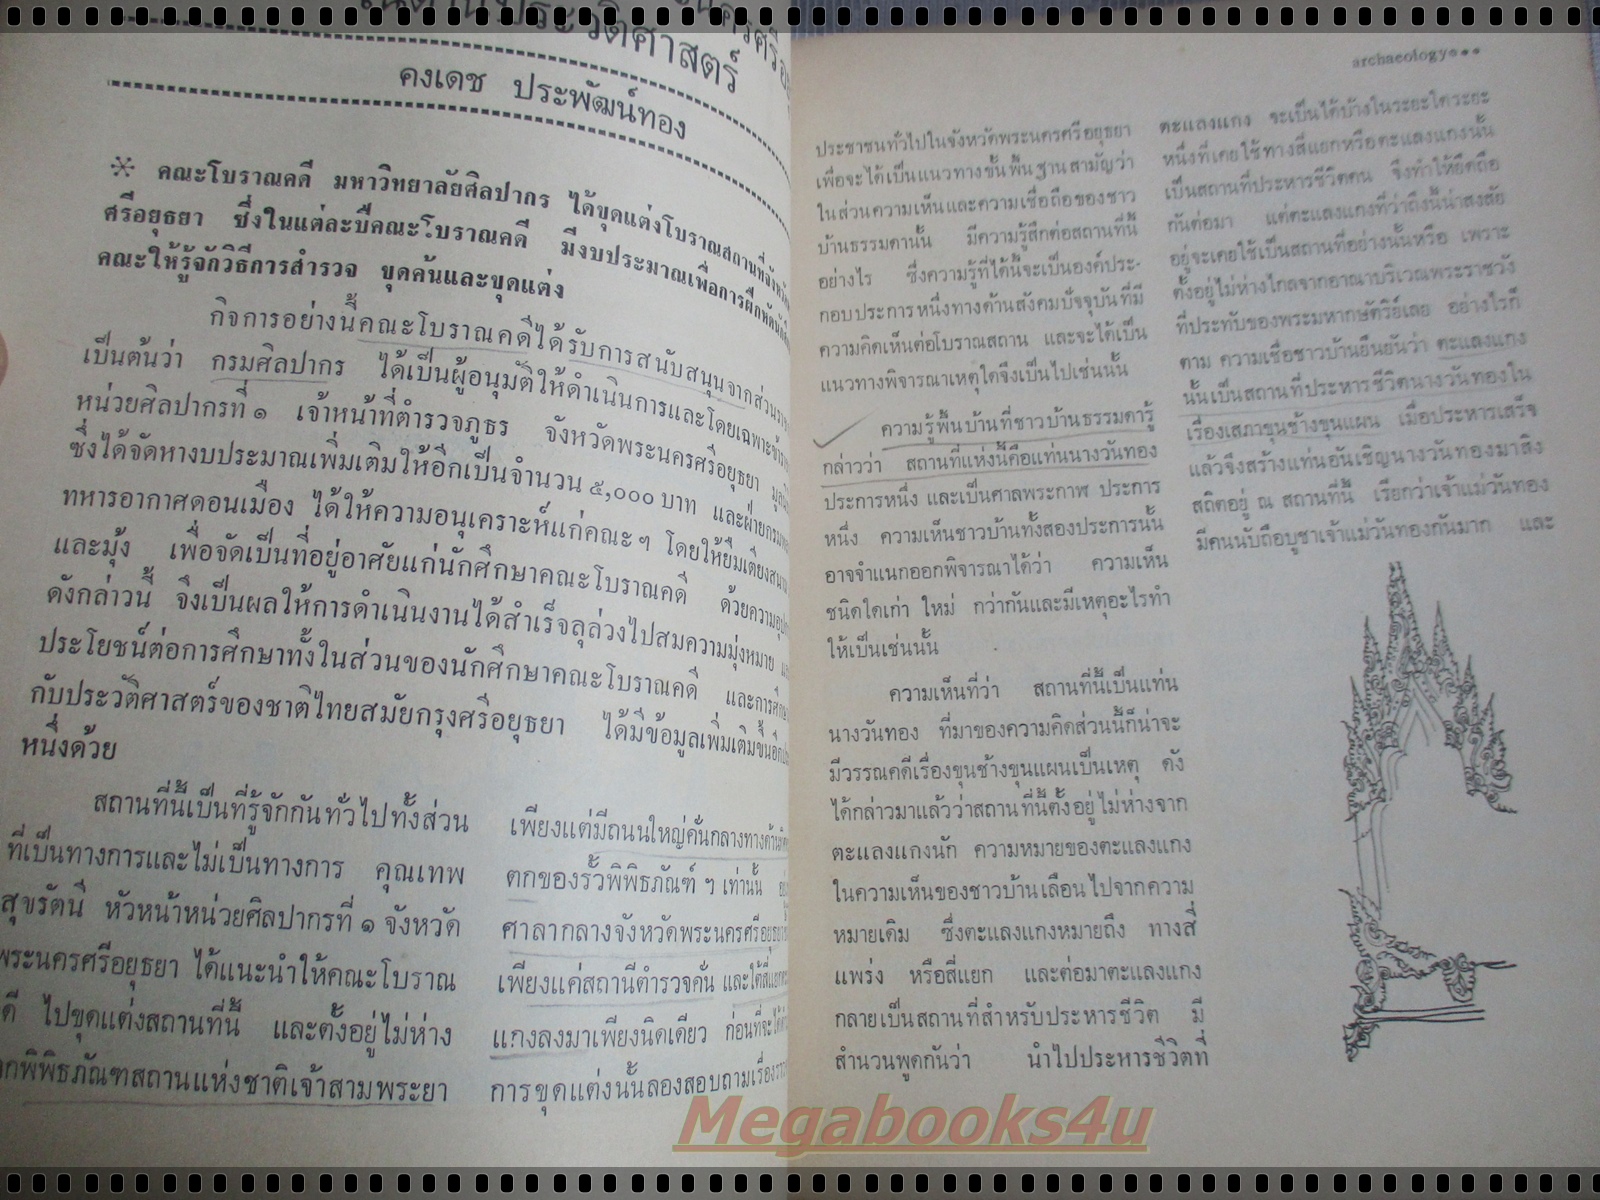 นครศรีอยุ
ประวัติศาสตร์
คงเดช ประพัฒน์ทอง
* คณะโบราณคดี มหาวิทยาลัยศิลปากร ได้ขุดแต่งโบราณสถานที่จังหวัด
ศรีอยุธยา ซึ่งในแต่ละปีคณะโบราณคดี มีงบประมาณเพื่อการฝึกหัด
คณะให้รู้จักวิธีการสำรวจ ขุดค้นและขุดแต่ง
กิจการอย่างนี้คณะโบราณคดีได้รับการสนับสนุนจากส่วนราช
เป็นต้นว่า กรมศิลปากร ได้เป็นผู้อนุมัติให้ดำเนินการและโดยเฉพาะ
หน่วยศิลปากรที่ ๑ เจ้าหน้าที่ตำรวจภูธร จังหวัดพระนครศรีอยุธยา
ซึ่งได้จัดหางบประมาณเพิ่มเติมให้อีกเป็นจำนวน ๕,๐๐๐ บาท และฝ่าย
ทหารอากาศดอนเมือง ได้ให้ความอนุเคราะห์แก่คณะฯ โดยให้ยืมเตียงสนาม
และมุ้ง เพื่อจัดเป็นที่อยู่อาศัยแก่นักศึกษาคณะโบราณคดี ด้วยความ
ดังกล่าวนี้ จึงเป็นผลให้การดำเนินงานได้สำเร็จลุล่วงไปสมความมุ่งหมาย
ประโยชน์ต่อการศึกษาทั้งในส่วนของนักศึกษาคณะโบราณคดี และการศึกษา
กับประวัติศาสตร์ของชาติไทยสมัยกรุงศรีอยุธยา ได้มีข้อมูลเพิ่มเติมขึ้นอีก
หนึ่งด้วย
สถานที่นี้เป็นที่รู้จักกันทั่วไปทั้งส่วน
ที่เป็นทางการและไม่เป็นทางการ คุณเทพ
สุขรัตนี หัวหน้าหน่วยศิลปากรที่ ๑ จังหวัด
พระนครศรีอยุธยา ได้แนะนำให้คณะโบราณ
ดี ไปขุดแต่งสถานที่นี้ และตั้งอยู่ไม่ห่าง
กพิพิธภัณฑสถานแห่งชาติเจ้าสามพระยา
เพียงแต่มีถนนใหญ่คั่นกลางทางด้าน
ตกของรั้วพิพิธภัณฑ์ ฯ เท่านั้น
ศาลากลางจังหวัดพระนครศรีอยุธยา
เพียงแค่สถานีตำรวจคั่น และใต้สี่แยก
แกงลงมาเพียงนิดเดียว ก่อนที่จะได้
การขุดแต่งนั้นลองสอบถามเรื่องรา
archaeology•••
ประชาชนทั่วไปในจังหวัดพระนครศรีอยุธยา
เพื่อจะได้เป็นแนวทางขั้นพื้นฐานสามัญว่า
ในส่วนความเห็นและความเชื่อถือของชาว
บ้านธรรมดานั้น มีความรู้สึกต่อสถานที่นี้
อย่างไร ซึ่งความรู้ที่ได้นี้จะเป็นองค์ประ-
กอบประการหนึ่งทางด้านสังคมปัจจุบันที่มี
ความคิดเห็นต่อโบราณสถาน และจะได้เป็น
แนวทางพิจารณาเหตุใดจึงเป็นไปเช่นนั้น
ความรู้พื้นบ้านที่ชาวบ้านธรรมดารู้
กล่าวว่า สถานที่แห่งนี้คือแท่นนางวันทอง
ประการหนึ่ง และเป็นศาลพระกาฬ ประการ
หนึ่ง ความเห็นชาวบ้านทั้งสองประการนั้น
อาจจำแนกออกพิจารณาได้ว่า ความเห็น
ชนิดใดเก่า ใหม่ กว่ากันและมีเหตุอะไรทำ
ให้เป็นเช่นนั้น
ความเห็นที่ว่า สถานที่นี้เป็นแท่น
นางวันทอง ที่มาของความคิดส่วนนี้ก็น่าจะ
มีวรรณคดีเรื่องขุนช้างขุนแผนเป็นเหตุ ดัง
ได้กล่าวมาแล้วว่าสถานที่นี้ตั้งอยู่ไม่ห่างจาก
ตะแลงแกงนัก ความหมายของตะแลงแกง
ในความเห็นของชาวบ้านเลือนไปจากความ
หมายเดิม ซึ่งตะแลงแกงหมายถึง ทางสี่
แพร่ง หรือสี่แยก และต่อมาตะแลงแกง
กลายเป็นสถานที่สำหรับประหารชีวิต มี
สำนวนพูดกันว่า นำไปประหารชีวิตที่
ตะแลงแกง จะเป็นได้บ้างในระยะใดระยะ
หนึ่งที่เคยใช้ทางสี่แยกหรือตะแลงแกงนั้น
เป็นสถานที่ประหารชีวิตคน จึงทำให้ยึดถือ
กันต่อมา แต่ตะแลงแกงที่ว่าถึงนี้น่าสงสัย
อยู่จะเคยใช้เป็นสถานที่อย่างนั้นหรือ เพราะ
ตั้งอยู่ไม่ห่างไกลจากอาณาบริเวณพระราชวัง
ที่ประทับของพระมหากษัตริย์เลย อย่างไรก็
ตาม ความเชื่อชาวบ้านยืนยันว่า ตะแลงแกง
นั้นเป็นสถานที่ประหารชีวิตนางวันทองใน
เรื่องเสภาขุนช้างขุนแผน เมื่อประหารเสร็จ
แล้วจึงสร้างแท่นอันเชิญนางวันทองมาสิง
สถิตอยู่ ณ สถานที่นี้ เรียกว่าเจ้าแม่วันทอง
มีคนนับถือบูชาเจ้าแม่วันทองกันมาก และ
Megabooks4u